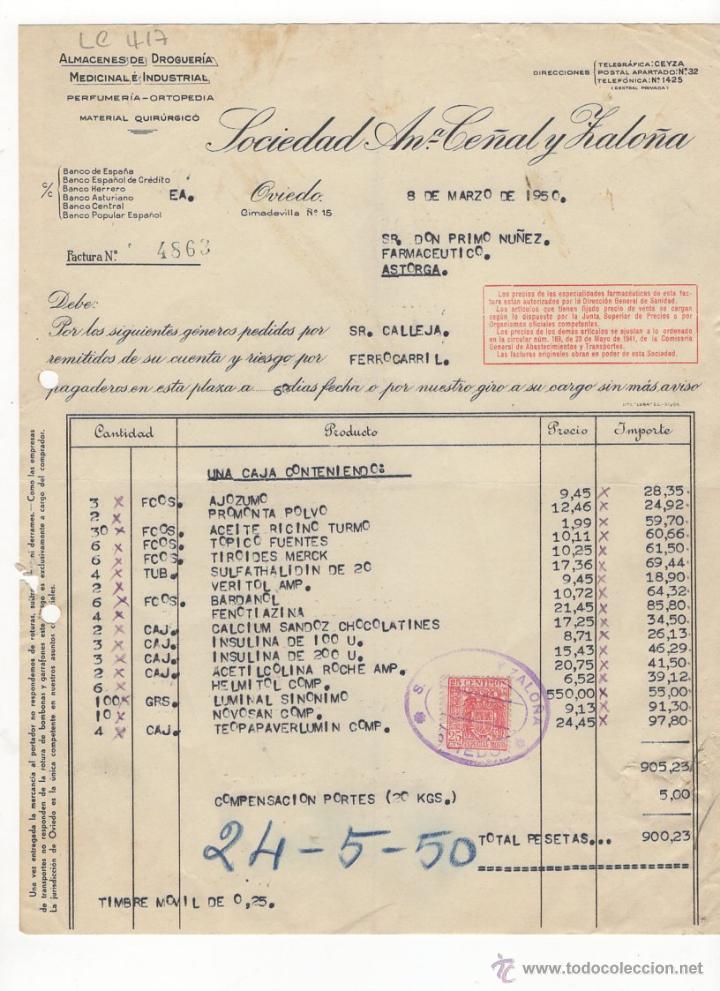 LC 417
ALMACENES DE DROGUERÍA
MEDICINAL É INDUSTRIAL
PERFUMERÍA-ORTOPEDIA
MATERIAL QUIRÚRGICO
DIRECCIONES
TELEGRÁFICA: CEYZA
POSTAL APARTADO: Nº 32
TELEFÓNICA: Nº 1425
(CENTRAL PRIVADA)
Sociedad Anª. Ceñal y Zaloña
c/c
Banco de España
Banco Español de Crédito
Banco Herrero
Banco Asturiano
Banco Central
Banco Popular Español
EA.
Oviedo.
Cimadevilla Nº 15
8 DE MARZO DE 1950.
Factura N.º 4863
SR. DON PRIMO NUÑEZ.
FARMACEUTICO.
ASTORGA.
Los precios de las especialidades farmacéuticas de esta factura
están autorizados por la Dirección General de Sanidad.
Los artículos que tienen fijado precio de venta se cargan
según lo dispuesto por la Junta Superior de Precios o por
Organismos oficiales competentes.
Los precios de los demás artículos se ajustan a lo ordenado
en la circular núm. 169, de 23 de Mayo de 1941, de la Comisaría
General de Abastecimientos y Transportes.
Las facturas originales obran en poder de esta Sociedad.
Debe:
Por los siguientes géneros pedidos por SR. CALLEJA.
remitidos de su cuenta y riesgo por FERROCARRIL.
pagaderos en esta plaza a 60 dias fecha o por nuestro giro a su cargo sin más aviso
Cantidad Producto Precio Importe
UNA CAJA CONTENIENDO:
3 x FCOS. AJOZUMO 9,45 x 28,35
2 x PROMONTA POLVO 12,46 x 24,92
30 x FCOS. ACEITE RICINO TURMO 1,99 x 59,70
6 x FCOS. TOPICO FUENTES 10,11 x 60,66
6 x FCOS. TIROIDES MERCK 10,25 x 61,50
4 x TUB. SULFATHALIDIN DE 20 17,36 x 69,44
2 x VERITOL AMP. 9,45 x 18,90
6 x FCOS. BARDANOL 10,72 x 64,32
4 x FENOTIAZINA 21,45 x 85,80
2 x CAJ. CALCIUM SANDOZ CHOCOLATINES 17,25 x 34,50
3 x CAJ. INSULINA DE 100 U. 8,71 x 26,13
3 x CAJ. INSULINA DE 200 U. 15,43 x 46,29
2 x CAJ. ACETILCOLINA ROCHE AMP. 20,75 x 41,50
6 x HELMITOL COMP. 6,52 x 39,12
100 x GRS. LUMINAL SINONIMO 550,00 x 55,00
10 x NOVOSAN COMP. 9,13 x 91,30
4 x CAJ. TEOPAPAVERLUMIN COMP. 24,45 x 97,80
25 CENTIMOS
25 25
905,23
COMPENSACION PORTES (20 KGS.) 5,00
TOTAL PESETAS... 900,23
24-5-50
TIMBRE MOVIL DE 0,25.
de transportes no responden de la rotura de bombonas y garrafones
La jurisdicción de Oviedo es la única competente en nuestros asuntos
© todocoleccion
www.todocoleccion.net